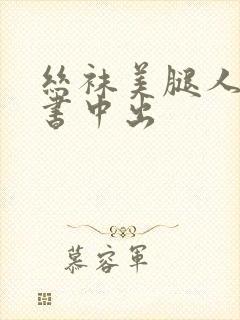 丝袜美腿人
书中出
慕容军